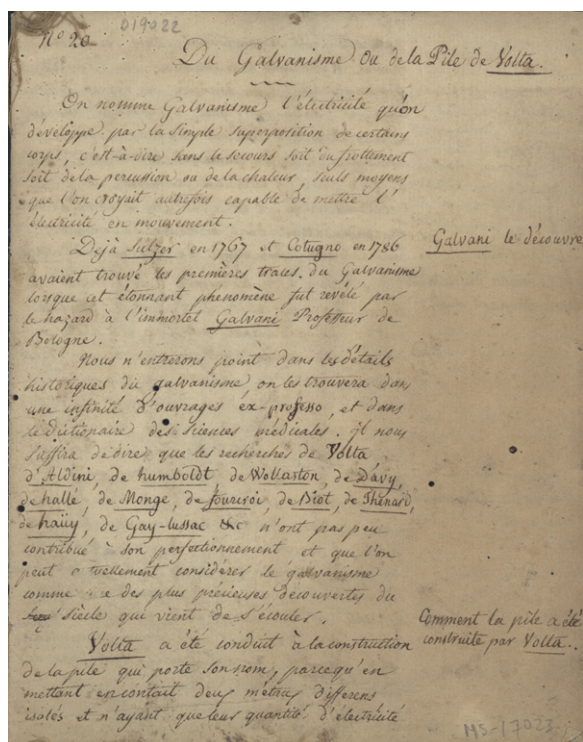 Nº 20
019022
Du Galvanisme ou de la Pile de Volta.
On nomme Galvanisme l'électricité qu'on
développe par la simple superposition de certains
corps, c'est-à-dire sans le secours soit du frottement
soit de la percussion ou de la chaleur, seuls moyens
que l'on croyait autrefois capable de mettre l'
électricité en mouvement.
Déjà Sulzer en 1767 et Cotugno en 1786
avaient trouvé les premières traces du Galvanisme
lorsque cet étonnant phénomène fut revélé par
le hazard à l'immortel Galvani Professeur de
Bologne.
Galvani le découvre
Nous n'entrerons point dans les détails
historiques du galvanisme, on les trouvera dans
une infinité d'ouvrages ex-professo, et dans
le dictionaire des sciences médicales. il nous
suffira de dire que les recherches de Volta
d'Aldini, de humboldt, de Wollaston, de Davy,
de hallé, de Monge, de fourcroi, de Biot, de Thénard,
de haüy, de Gay-lussac &c n'ont pas peu
contribué à son perfectionnement et que l'on
peut a tuellement considérer le galvanisme
comme e des plus précieuses découvertes du
siècle qui vient de s'écouler.
Volta a été conduit à la construction
de la pile qui porte son nom, parce qu'en
mettant en contait deux métaux différens
isolés et n'ayant que leur quantité d'électricité
Comment la pile a été
construite par Volta.
MS-17023